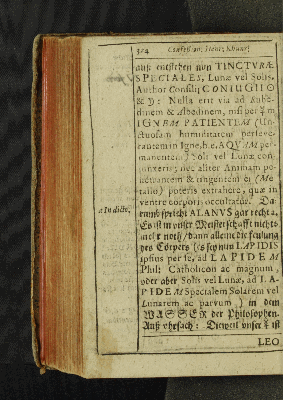 324
Confession, Henr: Khunr:
auß entstehen nun TINCTVRÆ
SPECIALES, Lunæ vel Solis.
Author Consilij CONIUGII ☉
& ☽: Nulla erit via ad Rube-
dinem & Albedinem, nisi per ☿ m
IGNEM PATIENTEM (Un-
ctuosam humiditatem perseve-
rantem in Igne, h.e. AQVAM per-
manentem) Soli vel Lunæ con-
junxeris; nec aliter Animam pe-
netrantem & tingentem ex (Me-
tallo) poteris extrahere, quæ in
ventre corporis occultatur. Da-
rumb spricht ALANVS gar recht a.
Es ist in unser Meisterschafft nichts
mehr noth / dann allein die faulung
des Cörpers (is seynun LAPIDIS
ipsius per se, ad LAPIDEM
Phil: Catholicon ac magnum,
oder aber Solis vel Lunæ, ad LA-
PIDEM Specialem Solarem vel
Lunarem ac parvum,) in dem
WASSER der Philosophen.
Auß ursach: Dieweil unser ☿ ist
LEO
a In dicte,